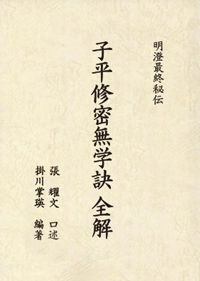 明澄最終秘伝
子平修密無学訣 全解
張 耀文 口述
掛川掌瑛 編著